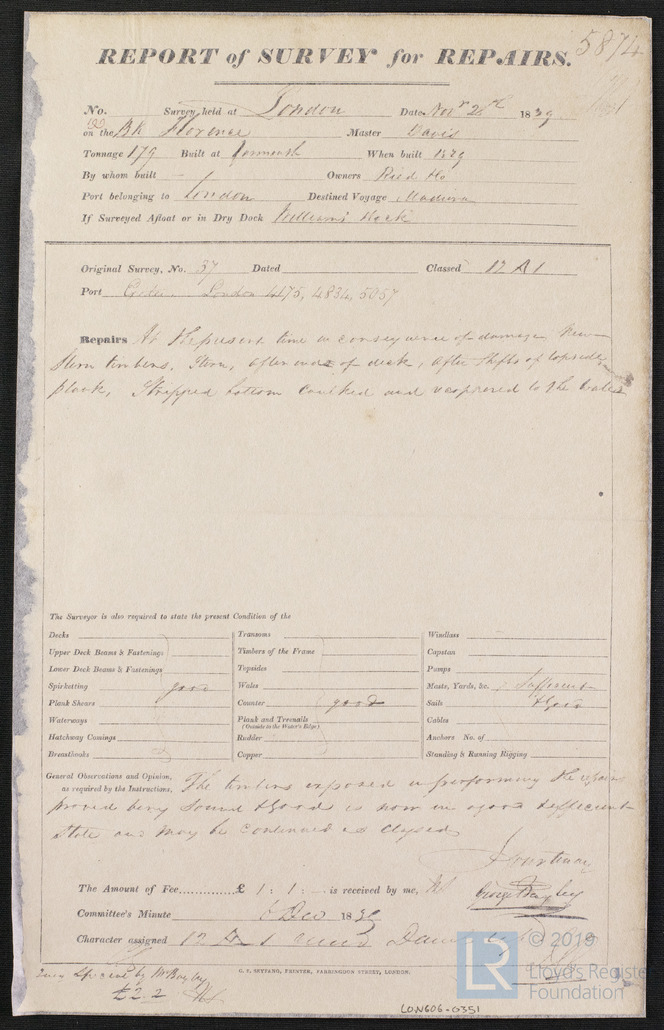 5874
REPORT of SURVEY for REPAIRS.
No. Survey held at London Date Novr 2 1839
on the Bk Florence Master Davis
Tonnage 179 Built at Yarmouth When built 1829
By whom built — Owners Reed &Co
Port belonging to London Destined Voyage Madeira
If Surveyed Afloat or in Dry Dock William's Dock
Original Survey, No. 37 Dated Classed 12 A 1
Port London 4175, 4834, 5057
Repairs At the present time in consequence of damage New
Stern timbers, Stern, after ends of deck, after shifts of topside
plank, Stripped bottom Caulked and recoppered to the Wales
The Surveyor is also required to state the present Condition of the
Decks Transoms Windlass
Upper Deck Beams & Fastenings Timbers of the Frame Capstan
Lower Deck Beams & Fastenings Topsides Pumps
Spirketting good Wales Masts, Yards, &c. Sufficient
Plank Shears Counter good Sails &Good
Waterways Plank and Treenails (Outside to the Water's Edge) Cables
Hatchway Comings Rudder Anchors No. of
Breasthooks Copper Standing & Running Rigging
General Observations and Opinion, The timbers exposed in performing the repairs
as required by the Instructions,
proved being Sound &Good is now in a good &efficient
State and may be Continued as Classed
Courtenay
The Amount of Fee............... £ 1 : 1 : — is received by me,
George Bayley
Committee's Minute 6 Dec 1839
Character assigned 12 A 1
G. F. SEYFANG, PRINTER, FARRINGDON STREET, LONDON.
Special by Mr Bayley
£2.2
LON606-0351
© 2019
LR
Lloyd's Register
Foundation